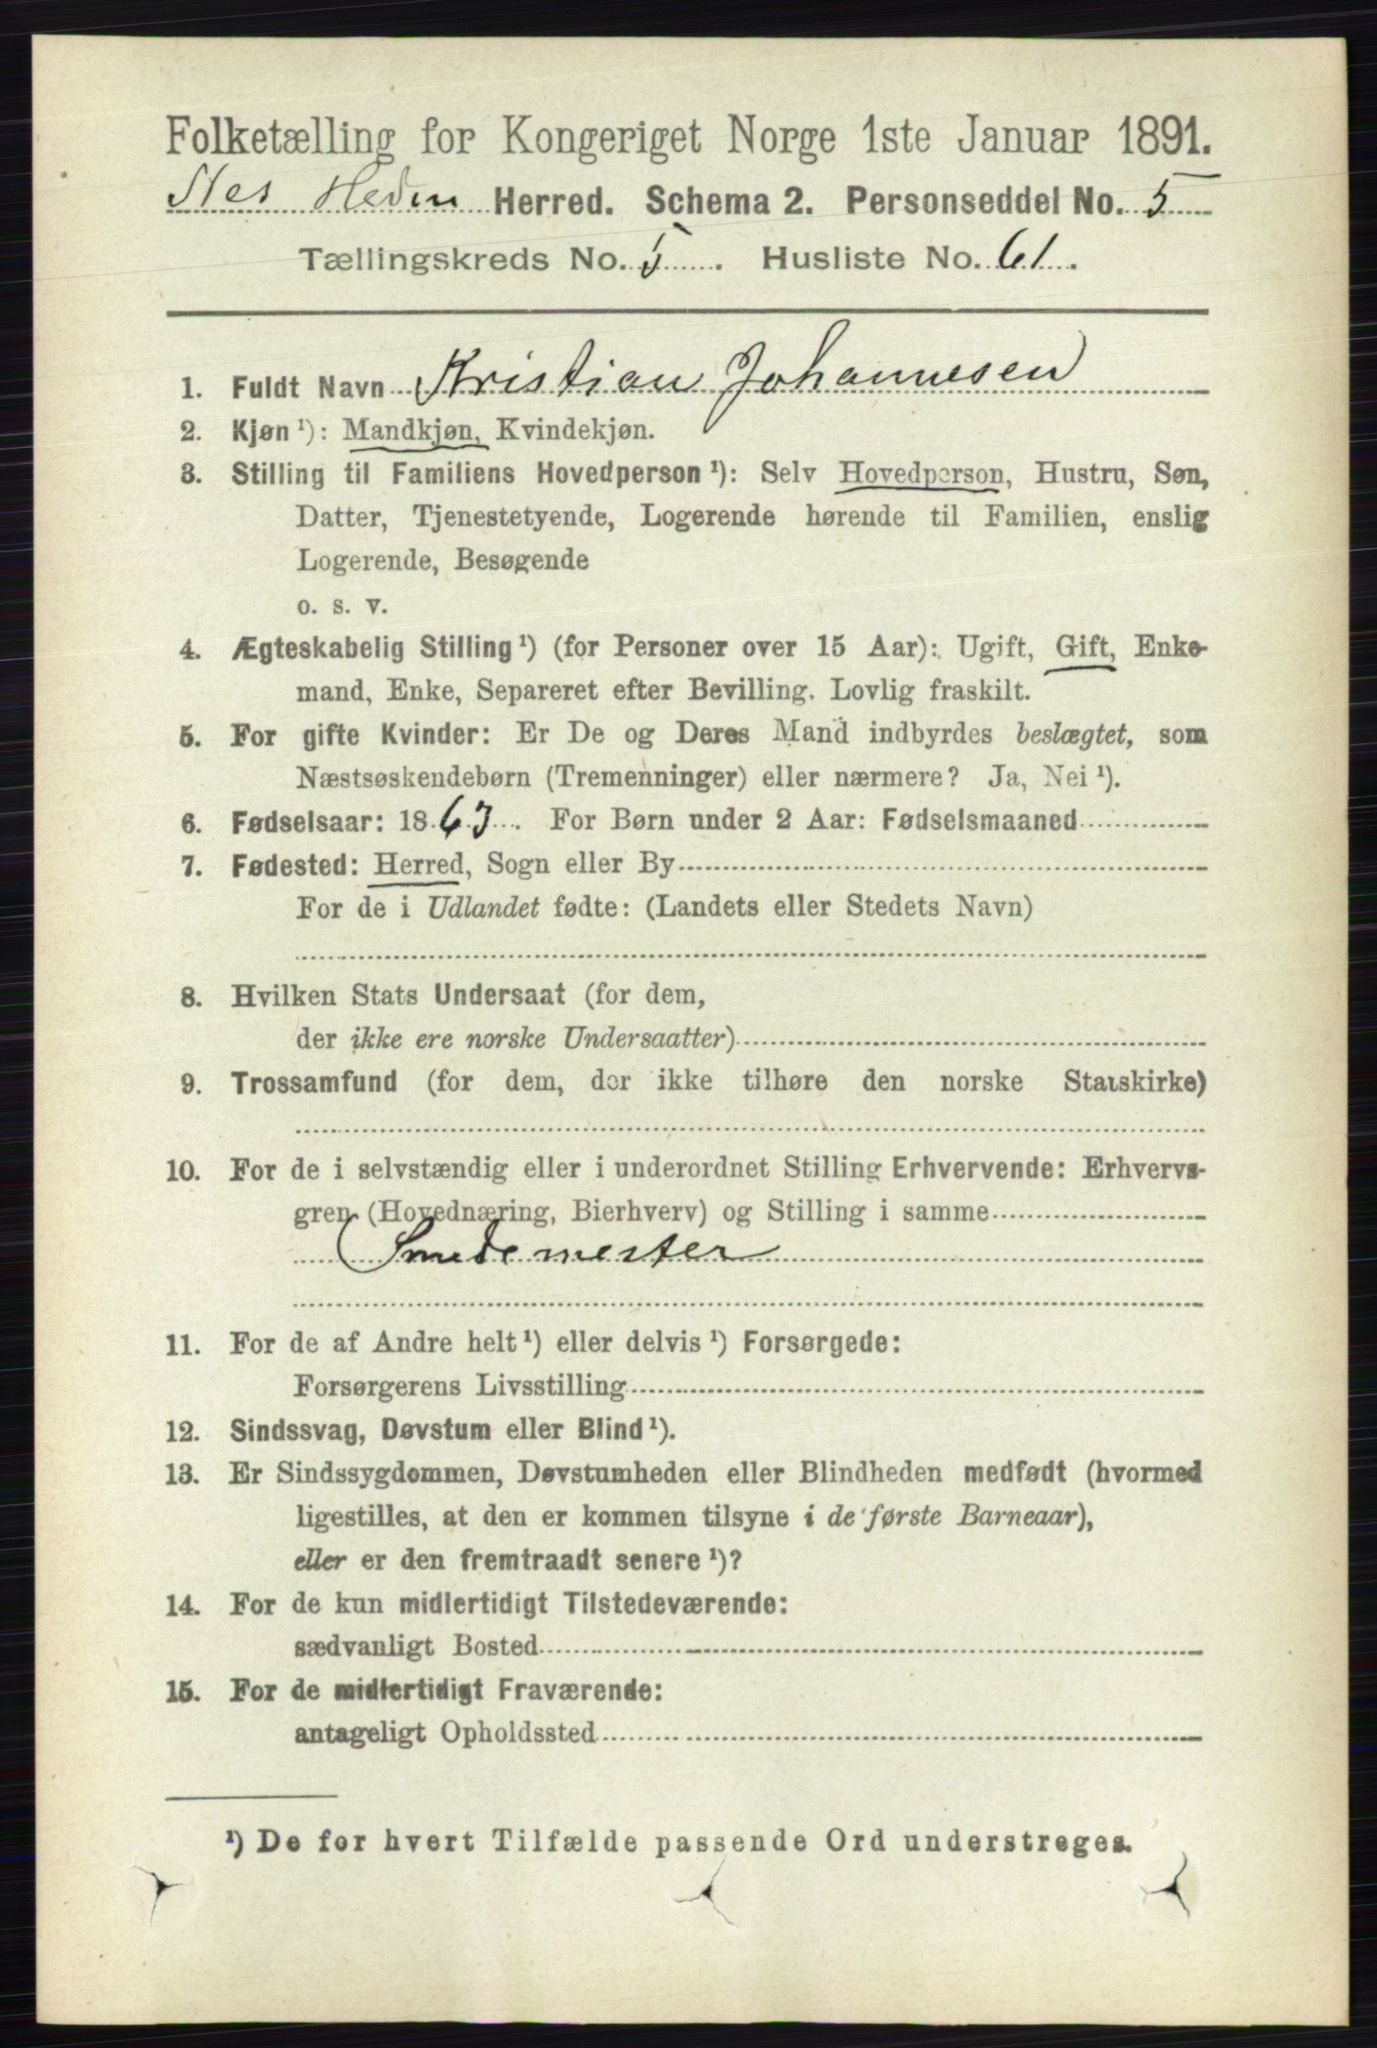 Folketælling for Kongeriget Norge 1ste Januar 1891.
Nes Hedm Herred. Schema 2. Personseddel No. 5
Tællingskreds No. 5. Husliste No. 61.
1. Fuldt Navn Kristian Johannesen
2. Kjøn ¹): Mandkjøn, Kvindekjøn.
3. Stilling til Familiens Hovedperson ¹): Selv Hovedperson, Hustru, Søn,
Datter, Tjenestetyende, Logerende hørende til Familien, enslig
Logerende, Besøgende
o. s. v.
4. Ægteskabelig Stilling ¹) (for Personer over 15 Aar): Ugift, Gift, Enke-
mand, Enke, Separeret efter Bevilling. Lovlig fraskilt.
5. For gifte Kvinder: Er De og Deres Mand indbyrdes beslægtet, som
Næstsøskendebørn (Tremenninger) eller nærmere? Ja, Nei ¹).
6. Fødselsaar: 1863. For Børn under 2 Aar: Fødselsmaaned
7. Fødested: Herred, Sogn eller By
For de i Udlandet fødte: (Landets eller Stedets Navn)
8. Hvilken Stats Undersaat (for dem,
der ikke ere norske Undersaatter)
9. Trossamfund (for dem, der ikke tilhøre den norske Statskirke)
10. For de i selvstændig eller i underordnet Stilling Erhvervende: Erhvervs-
gren (Hovednæring, Bierhverv) og Stilling i samme
Smedemester
11. For de af Andre helt ¹) eller delvis ¹) Forsørgede:
Forsørgerens Livsstilling
12. Sindssvag, Døvstum eller Blind ¹).
13. Er Sindssygdommen, Døvstumheden eller Blindheden medfødt (hvormed
ligestilles, at den er kommen tilsyne i de første Barneaar),
eller er den fremtraadt senere ¹)?
14. For de kun midlertidigt Tilstedeværende:
sædvanligt Bosted
15. For de midlertidigt Fraværende:
antageligt Opholdssted
¹) De for hvert Tilfælde passende Ord understreges.